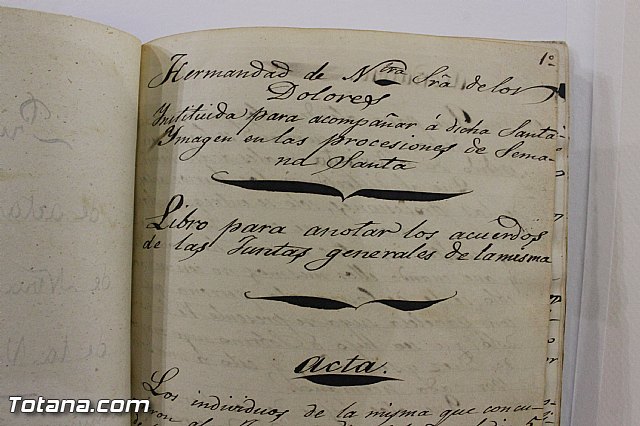 1º
Hermandad de Ntra Srâ de los
Dolores
Instituida para acompañar á dicha Santa
Imagen en las procesiones de Sema-
na Santa
Libro para anotar los acuerdos
de las Juntas generales de la misma
Acta.
Los individuos de la misma que concu-
Totana.com